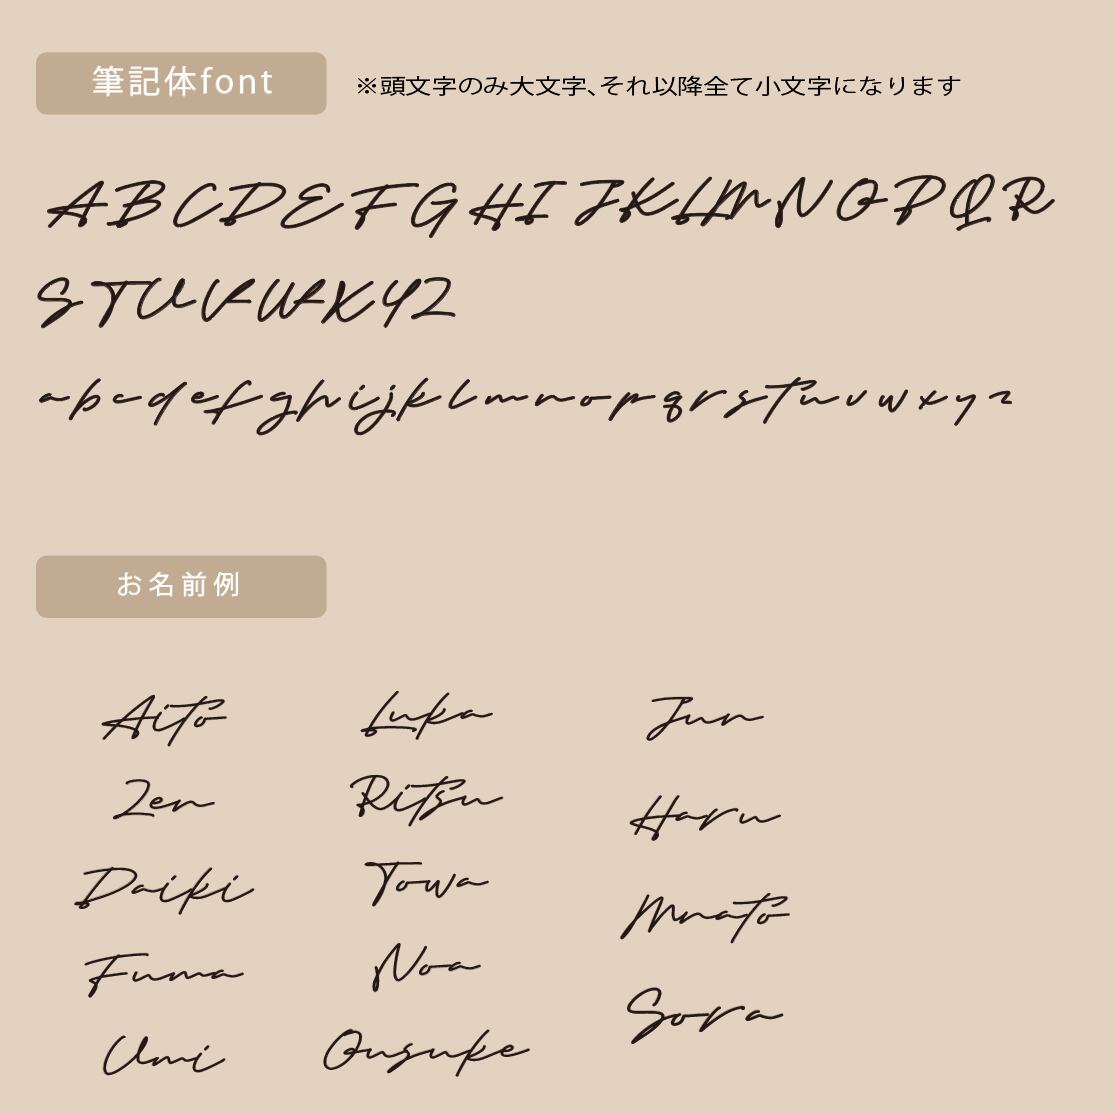 筆記体font
※頭文字のみ大文字、それ以降全て小文字になります
A B C D E F G H I J K L M N O P Q R
S T U V W X Y Z
a b c d e f g h i j k l m n o p q r s t u v w x y z
お名前例
Aito Luka Jun
Zen Ritsu Haru
Daiki Towa Mnato
Fuma Noa Sora
Umi Ousuke